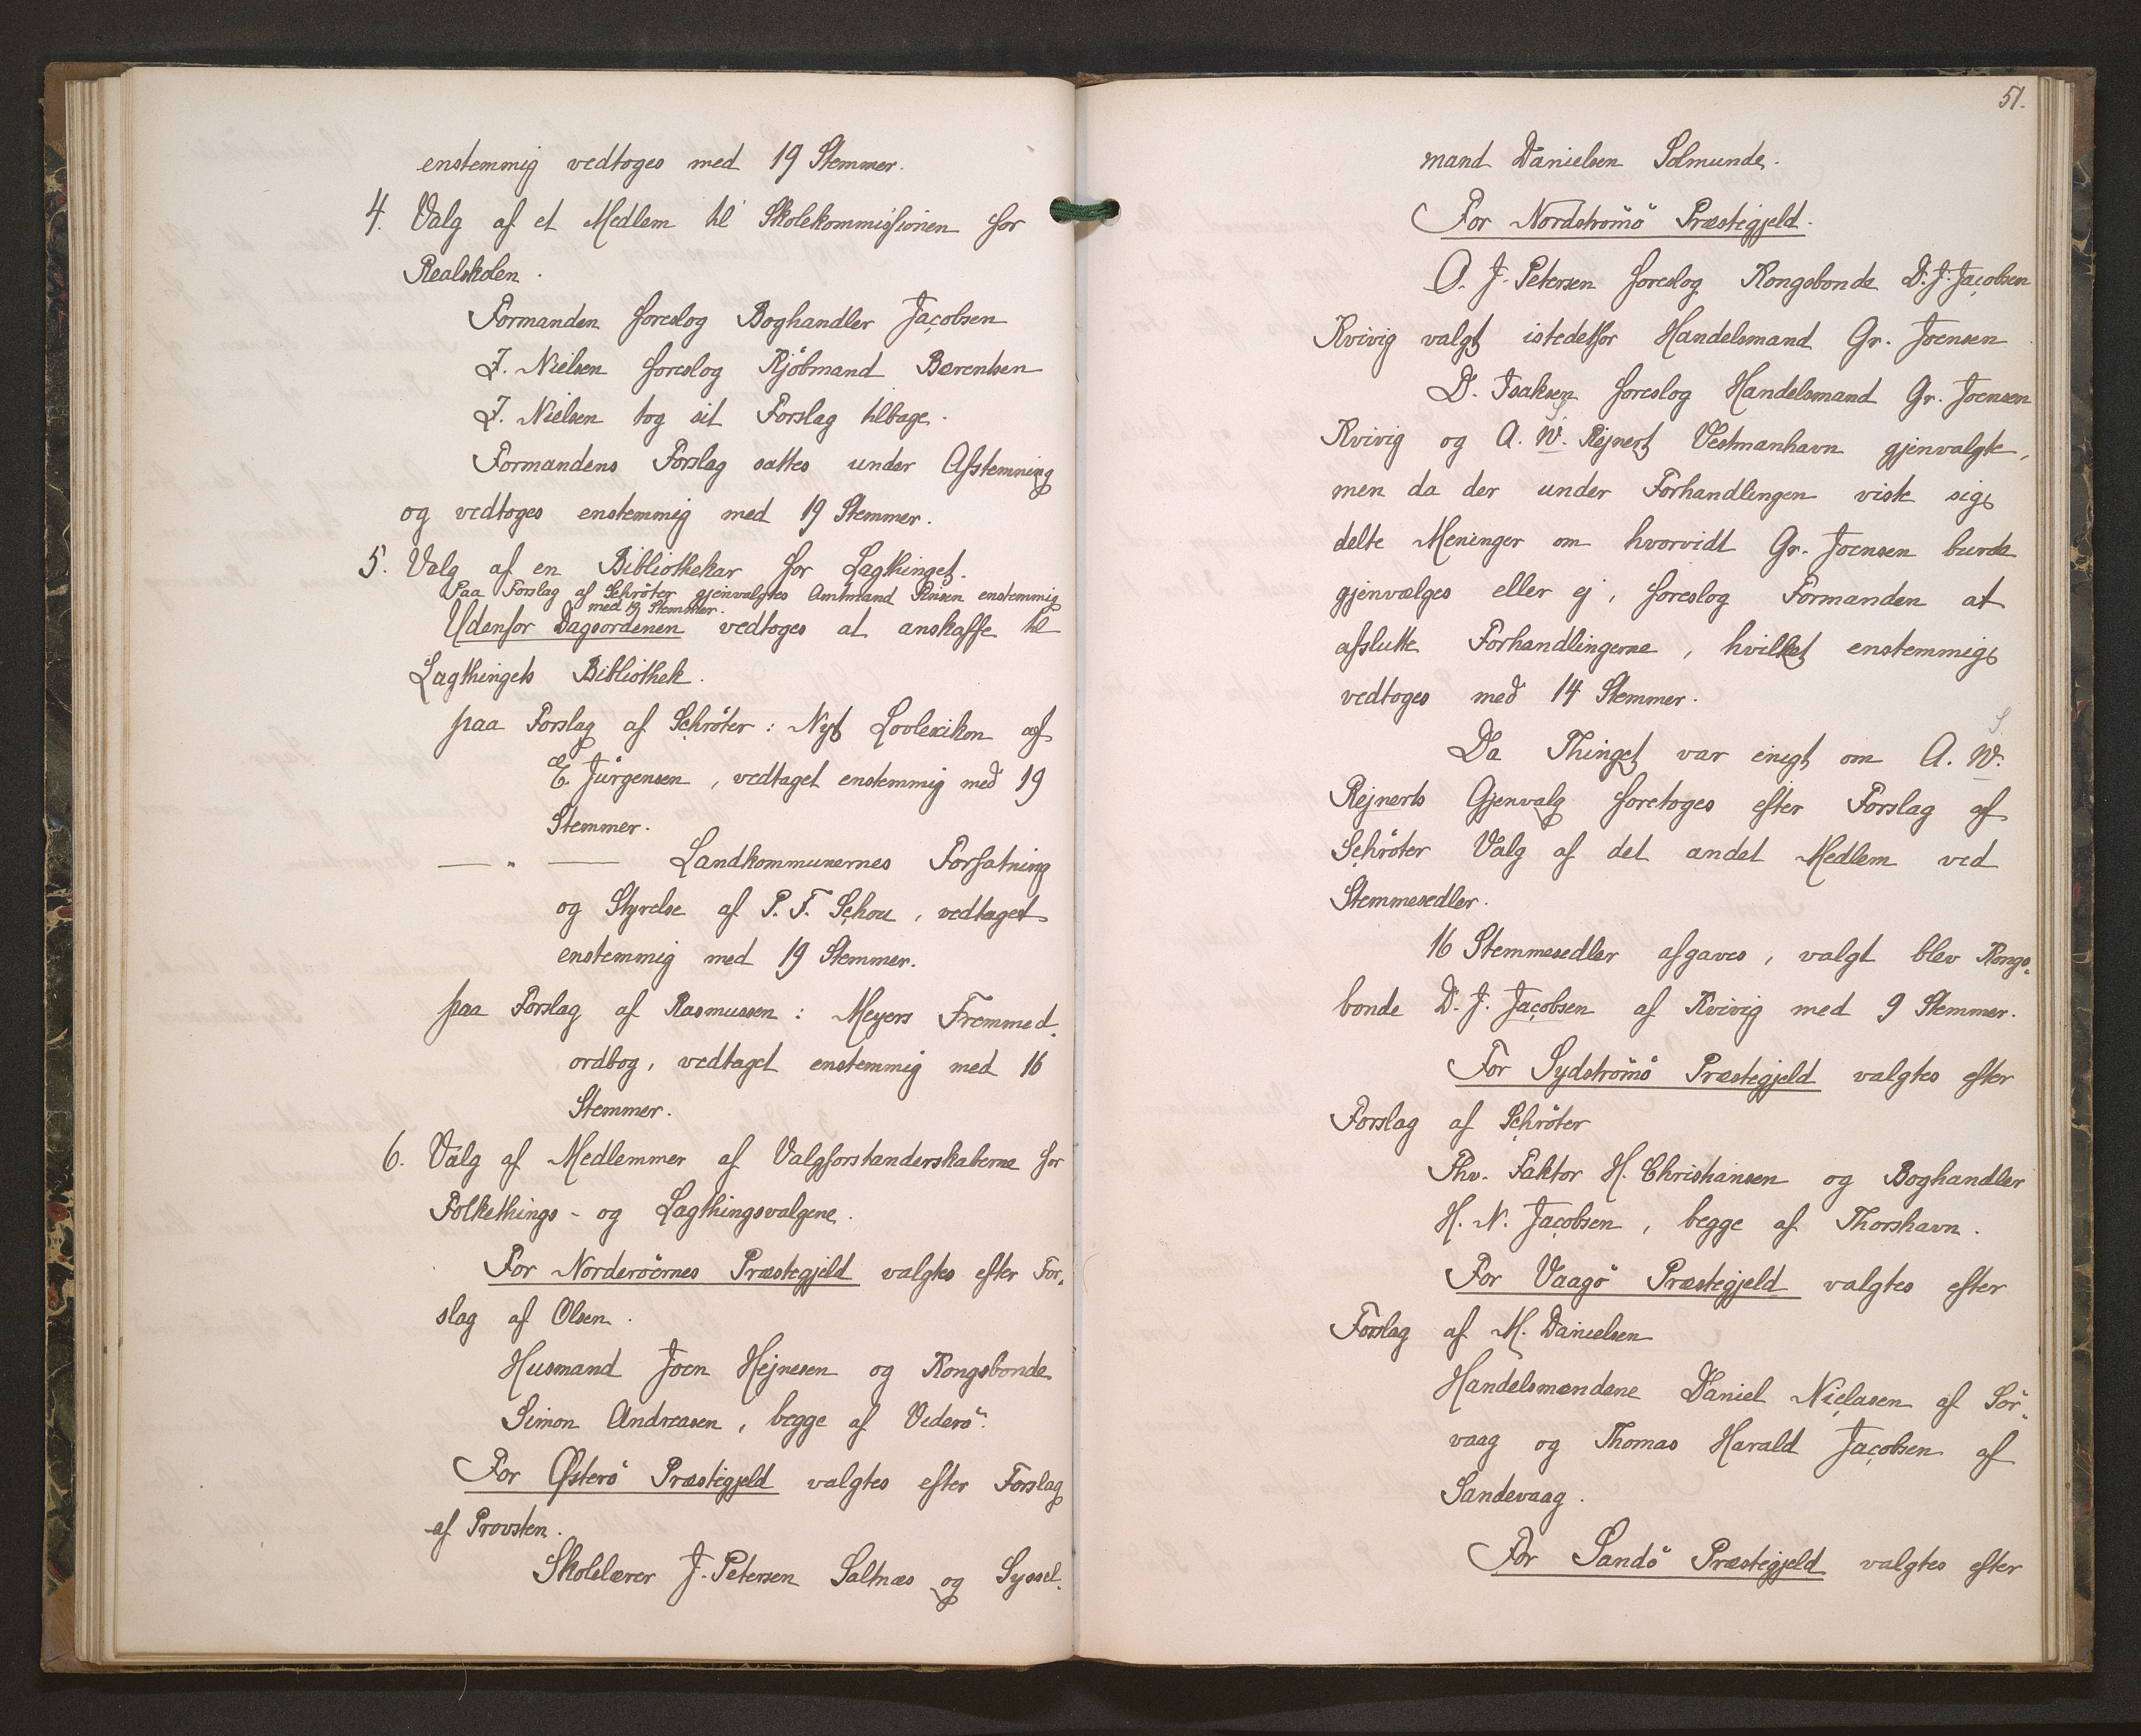 enstemmig vedtoges med 19 Stemmer.
4. Valg af et Medlem til Skolekommissionen for
Realskolen.
Formanden foreslog Boghandler Jacobsen
J. Nielsen foreslog Kjöbmand Berentsen
J. Nielsen tog sit Forslag tilbage.
Formandens Forslag sattes under Afstemning
og vedtoges enstemmig med 19 Stemmer.
5. Valg af en Bibliothekar for Lagthinget.
Paa Forslag af Schröter gjenvalgtes Amtmand enstemmig
med 19 Stemmer.
Udenfor Dagsordenen vedtoges at anskaffe til
Lagthingets Bibliothek.
paa Forslag af Schröter: Nyt Lovlexikon af
E. Jürgensen, vedtaget enstemmig med 19
Stemmer.
— " — Landkommunernes Forfatning
og Styrelse af P. F. Schou, vedtaget
enstemmig med 19 Stemmer.
paa Forslag af Rasmussen: Meyers Fremmed-
ordbog, vedtaget enstemmig med 16
Stemmer.
6. Valg af Medlemmer af Valgforstanderskaberne for
Folkethings- og Lagthingsvalgene.
For Norderöernes Præstegjeld valgtes efter For-
slag af Olsen.
Husmand Joen Hejnesen og Kongsbonde
Simon Andreasen, begge af Viderö.
For Østerö Præstegjeld valgtes efter Forslag
af Provsten.
Skolelærer J. Petersen Saltnæs og Syssel-
51.
mand Danielsen Solmunde.
For Nordströmö Præstegjeld.
O. J. Petersen foreslog Kongsbonde D. J. Jacobsen
Kvivig valgt istedetfor Handelsmand Gr. Joensen
D. Isaksen foreslog Handelsmand Gr. Joensen
Kvivig og A. W. Rejnert Vestmanhavn gjenvalgte,
men da der under Forhandlingen viste sig
delte Meninger om hvorvidt Gr. Joensen burde
gjenvælges eller ej, foreslog Formanden at
afslutte Forhandlingerne, hvilket enstemmig
vedtoges med 14 Stemmer.
Da Thinget var enigt om A. W.
Rejnerts Gjenvalg foretoges efter Forslag af
Schröter Valg af det andet Medlem ved
Stemmesedler.
16 Stemmesedler afgaves, valgt blev Kongs-
bonde D. J. Jacobsen af Kvivig med 9 Stemmer.
For Sydströmö Præstegjeld valgtes efter
Forslag af Schröter
Fhv. Faktor H. Christiansen og Boghandler
H. N. Jacobsen, begge af Thorshavn.
For Vaagö Præstegjeld valgtes efter
Forslag af M. Danielsen
Handelsmændene Daniel Niclasen af Sör-
vaag og Thomas Harald Jacobsen af
Sandevaag.
For Sandö Præstegjeld valgtes efter